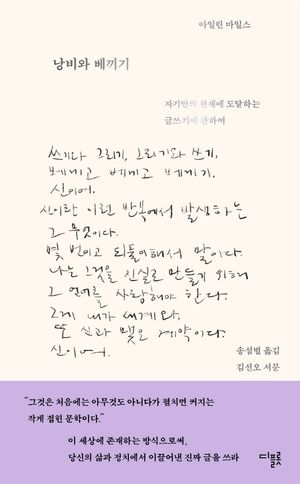 아일린 마일스
낭비와 베끼기
자기만의 현재에 도달하는
글쓰기에 관하여
쓰기와 그리기, 그리기와 쓰기,
베끼고 베끼고 베끼기.
신이여.
신이란 이런 반복에서 발생하는
그 무엇이다.
몇 번이고 되풀이해서 말이다.
나는 그것을 진실로 만들기 위해
그 언어를 사랑해야 한다.
그게 내가 세계와,
또 신과 맺은 계약이다.
신이여.
송섬별 옮김
김선오 서문
"그것은 처음에는 아무것도 아니다가 펼치면 커지는
작게 접힌 문학이다."
이 세상에 존재하는 방식으로써,
당신의 삶과 정치에서 이끌어낸 진짜 글을 쓰라
디플롯